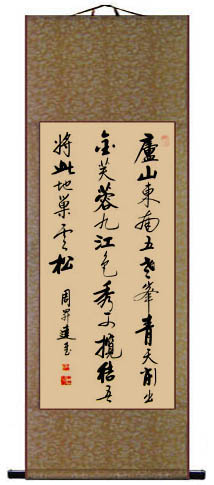 廬山東南五老峯青天削出
金芙蓉九江色秀可攬結吾
將此地巢雲松
周書